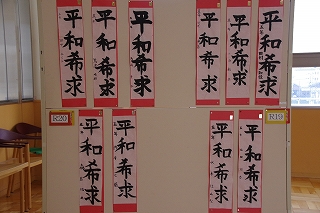 平和希求
平和希求
平和希求
平和希求
平和希求
平和希求
R20
平和希求
平和希求
平和希求
平和希求
R19